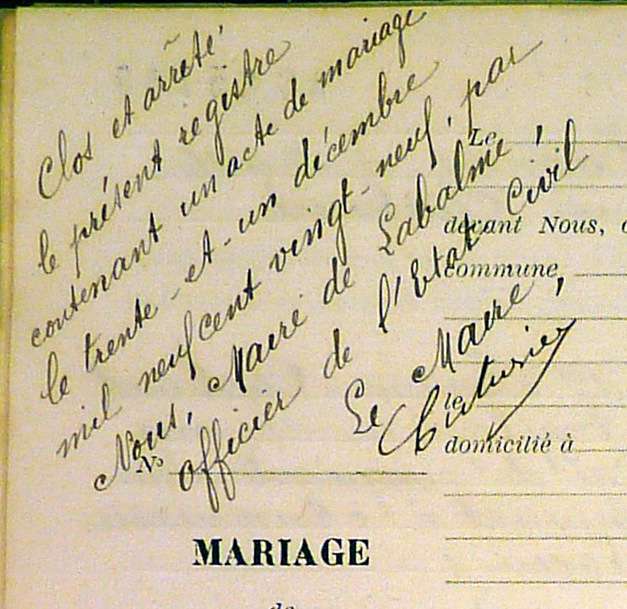 Clos et arrêté
le présent registre
contenant un acte de mariage
le trente-et-un décembre
mil neuf cent vingt-neuf, par
Nous, Maire de Labalme,
officier de l'Etat Civil
Le Maire,
Le
devant Nous,
commune
le
domicilié à
N°
MARIAGE
de